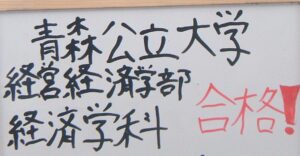 青森公立大学
経営経済学部
経済学科
合格!